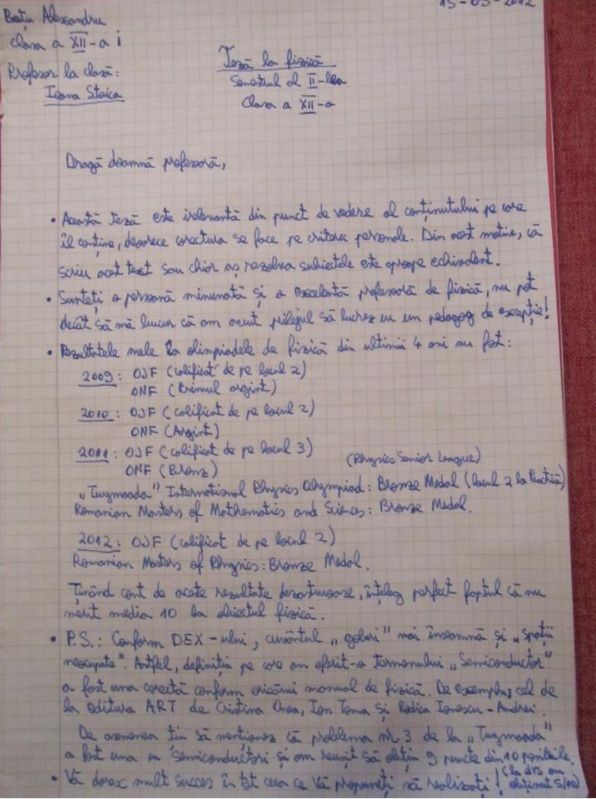 15-05-2012
Bețiu Alexandru
Clasa a XII-a i
Profesor la clasă:
Ioana Stoica
Teză la fizică
Semestrul al II-lea
Clasa a XII-a
Dragă doamnă profesoară,
• Această teză este irelevantă din punct de vedere al conținutului pe care
îl conține, deoarece corectura se face pe criterii personale. Din acest motiv, că
scriu acest text sau chiar aș rezolva subiectele este aproape echivalent.
• Sunteți o persoană minunată și o excelentă profesoară de fizică, nu pot
decât să mă bucur că am avut prilejul să lucrez cu un pedagog de excepție!
• Rezultatele mele la olimpiadele de fizică din ultimii 4 ani au fost:
2009: OJF (calificat de pe locul 2)
ONF (Primul argint)
2010: OJF (calificat de pe locul 2)
ONF (Argint)
2011: OJF (calificat de pe locul 3)
ONF (Bronz)
(Physics Senior League)
„Tuymaada" International Physics Olympiad: Bronze Medal (locul 2 la Practică)
Romanian Masters of Mathematics and Sciences: Bronze Medal.
2012: OJF (calificat de pe locul 2)
Romanian Masters of Physics: Bronze Medal.
Ținând cont de aceste rezultate dezastruoase, înțeleg perfect faptul că nu
merit media 10 la obiectul fizică.
• P.S.: Conform DEX-ului, cuvântul „goluri" mai înseamnă și „spații
neocupate". Astfel, definiția pe care am oferit-o termenului „Semiconductor"
a fost una corectă conform oricărui manual de fizică. De exemplu, cel de
la editura ART de Cristina Onea, Ion Toma și Rodica Ionescu-Andrei.
De asemenea țin să menționez că problema nr. 3 de la „Tuymaada"
a fost una cu semiconductori și am reușit să obțin 9 puncte din 10 posibile.
(la dvs am
obținut 5/10)
• Vă doresc mult succes în tot ceea ce vă propuneți să realizați!